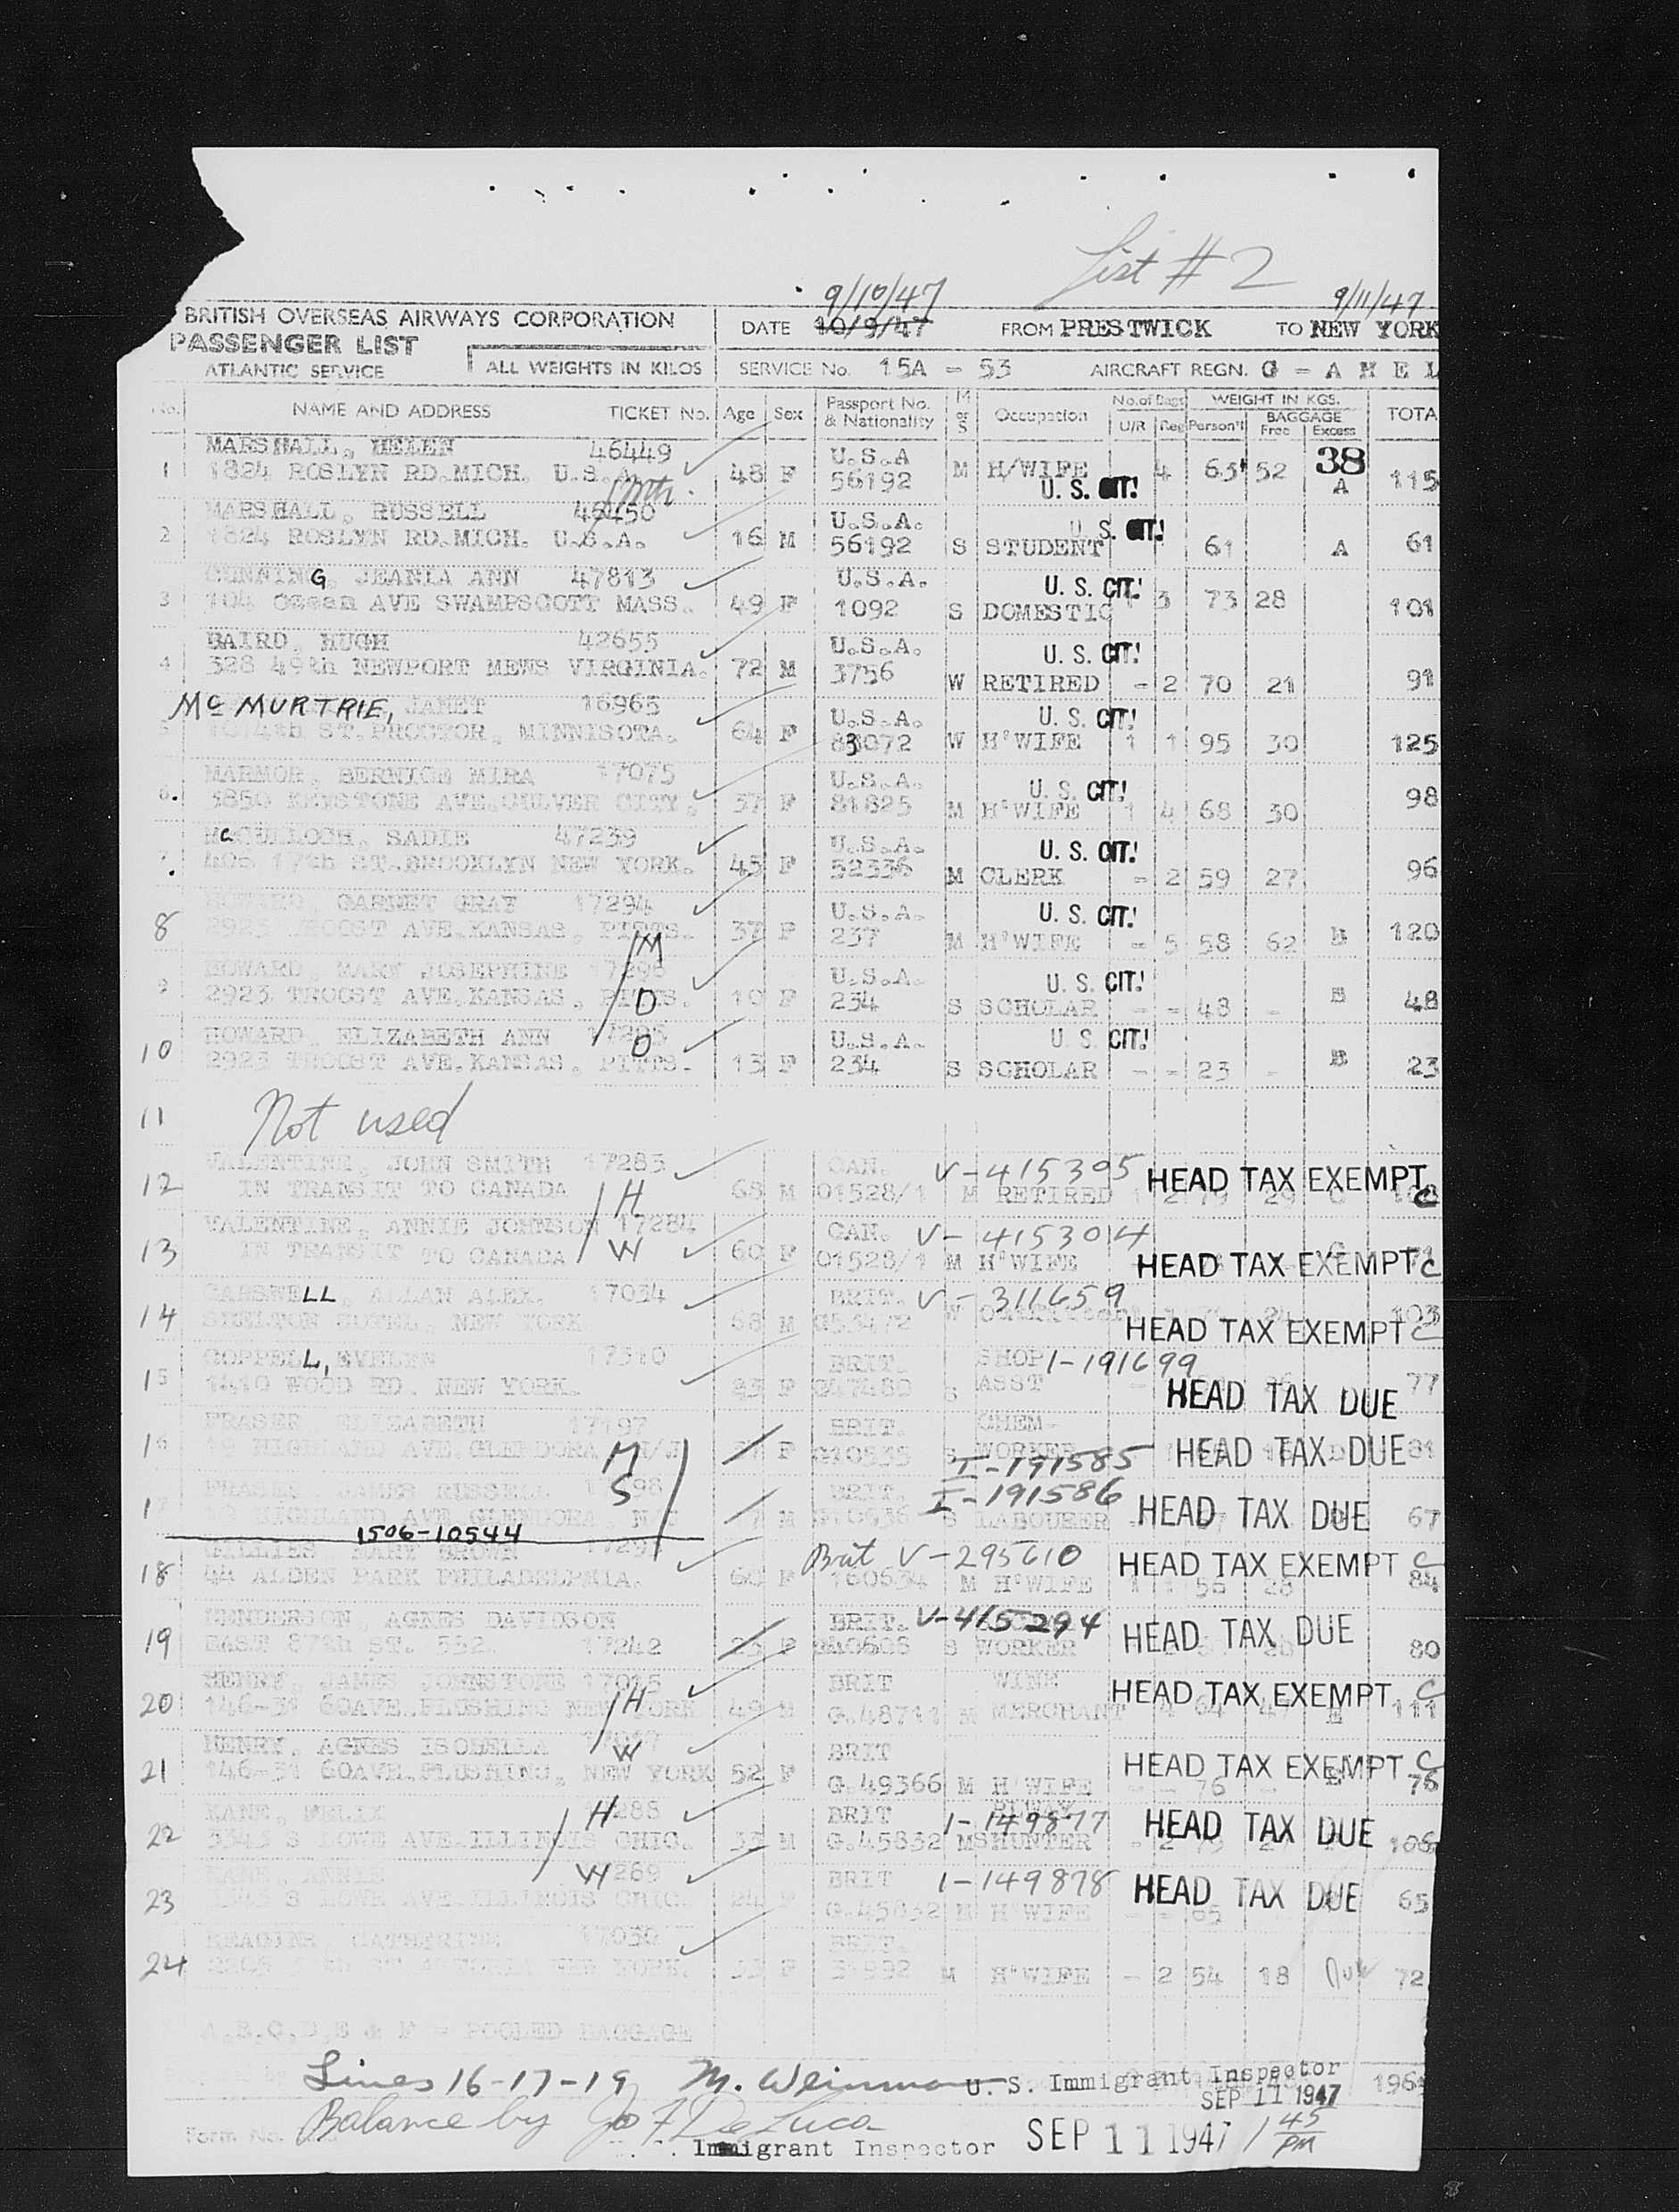 List # 2
9/10/47
9/11/47
BRITISH OVERSEAS AIRWAYS CORPORATION DATE 10/9/47 FROM PRESTWICK TO NEW YORK
PASSENGER LIST
ATLANTIC SERVICE ALL WEIGHTS IN KILOS SERVICE No. 15A - 53 AIRCRAFT REGN. G - A H E L
No. NAME AND ADDRESS TICKET No. Age Sex Passport No. & Nationality M or S Occupation No. of Bags U/R Reg WEIGHT IN KGS. Person'l BAGGAGE Free Excess TOTA
MARSHALL, HELEN 46449 U.S.A 38
1 1824 ROSLYN RD.MICH. U.S.A. 48 F 56192 M H/WIFE 4 63 52 A 115
U. S. CIT!
MARSHALL, RUSSELL 46450 U.S.A. U. S. CIT!
2 1824 ROSLYN RD.MICH. U.S.A. 16 M 56192 S STUDENT 61 A 61
CUNNING, JEANIA ANN 47813 U.S.A. U. S. CIT!
3 104 Ocean AVE SWAMPSCOTT MASS. 49 F 1092 S DOMESTIC 3 73 28 101
BAIRD, HUGH 42655 U.S.A. U. S. CIT!
4 328 49th NEWPORT MEWS VIRGINIA. 72 M 3756 W RETIRED - 2 70 21 91
Mc MURTRIE, JANET 16965 U.S.A. U. S. CIT!
5 4th ST.PROCTOR, MINNISOTA. 64 F 83072 W H'WIFE 1 1 95 30 125
MARMOR, BERNICE MIRA 17075 U.S.A. U. S. CIT!
6. 3850 KEYSTONE AVE.CULVER CITY. 37 F 81825 M H'WIFE 1 4 68 30 98
McCULLOCH, SADIE 47239 U.S.A. U. S. CIT!
7 405 17th ST.BROOKLYN NEW YORK. 45 F 52336 M CLERK - 2 59 27 96
HOWARD, GARNET GRAY 17294 U.S.A. U. S. CIT!
8 2923 TROOST AVE.KANSAS, PITTS. M 37 F 237 M H'WIFE - 5 58 62 B 120
HOWARD, MARY JOSEPHINE 17296 U.S.A. U. S. CIT!
9 2923 TROOST AVE.KANSAS, PITTS. D 10 F 234 S SCHOLAR - - 48 - B 48
HOWARD, ELIZABETH ANN 17295 U.S.A. U. S. CIT!
10 2923 TROOST AVE.KANSAS, PITTS. D 13 F 234 S SCHOLAR - - 23 - B 23
11 Not used
VALENTINE, JOHN SMITH 17283 CAN. V-415305 HEAD TAX EXEMPT C
12 IN TRANSIT TO CANADA H 68 M 01528/1 M RETIRED 29
VALENTINE, ANNIE JOHNSON 17284 CAN. V-415304
13 IN TRANSIT TO CANADA W 60 F 01528/1 M H'WIFE HEAD TAX EXEMPT C
CARSWELL, ALLAN ALEX. 17034 BRIT. V-311659
14 SHELTON HOTEL, NEW YORK 68 M W 103
HEAD TAX EXEMPT C
COPPELL, EVELYN 17310 BRIT. SHOP 1-191699
15 1410 WOOD RD. NEW YORK. F S ASST HEAD TAX DUE 77
FRASER ELIZABETH 17197 BRIT. CHEM-
16 19 HIGHLAND AVE.GLENDORA N/J M F G10535 S WORKER I-191585 HEAD TAX DUE 81
FRASER JAMES RUSSELL 98 S BRIT. I-191586
17 HIGHLAND AVE.GLENDORA M S LABOURER HEAD TAX DUE 67
1506-10544
GILLIES MARY BROWN Brit V-295610 HEAD TAX EXEMPT C
18 44 ALDEN PARK PHILADELPHIA. 60 F 160634 M H'WIFE 1 1 56 28 84
HENDERSON, AGNES DAVIDSON BRIT. V-415294
19 EAST 87th ST. 332. 17242 F S WORKER HEAD TAX DUE 80
HENRY, JAMES JOHNSTONE 17015 BRIT WINE
20 146-31 60AVE.FLUSHING NEW YORK H 49 M G.48711 M MERCHANT HEAD TAX EXEMPT C 4 64 47 E 111
HENRY, AGNES ISOBELLA BRIT
21 146-31 60AVE.FLUSHING, NEW YORK W 52 F G.49366 M H'WIFE HEAD TAX EXEMPT C - - 76 - E 76
KANE, FELIX H 17288 BRIT 1-149877
22 3343 S LOWE AVE.ILLINOIS CHIC. 33 M G.45832 M SHUNTER HEAD TAX DUE 106
KANE, ANNIE W 17289 BRIT 1-149878
23 3343 S LOWE AVE.ILLINOIS CHIC. 24 F G.45832 M H'WIFE HEAD TAX DUE 65
CATHERINE 17030 BRIT.
24 33 F M H'WIFE - 2 54 18 72
A,B,C,D,E & F = POOLED BAGGAGE
Lines 16-17-19 M. Weinman U. S. Immigrant Inspector 196
SEP 11 1947
Balance by Jo F De Luca
Form No. Immigrant Inspector SEP 11 1947 1 45 PM